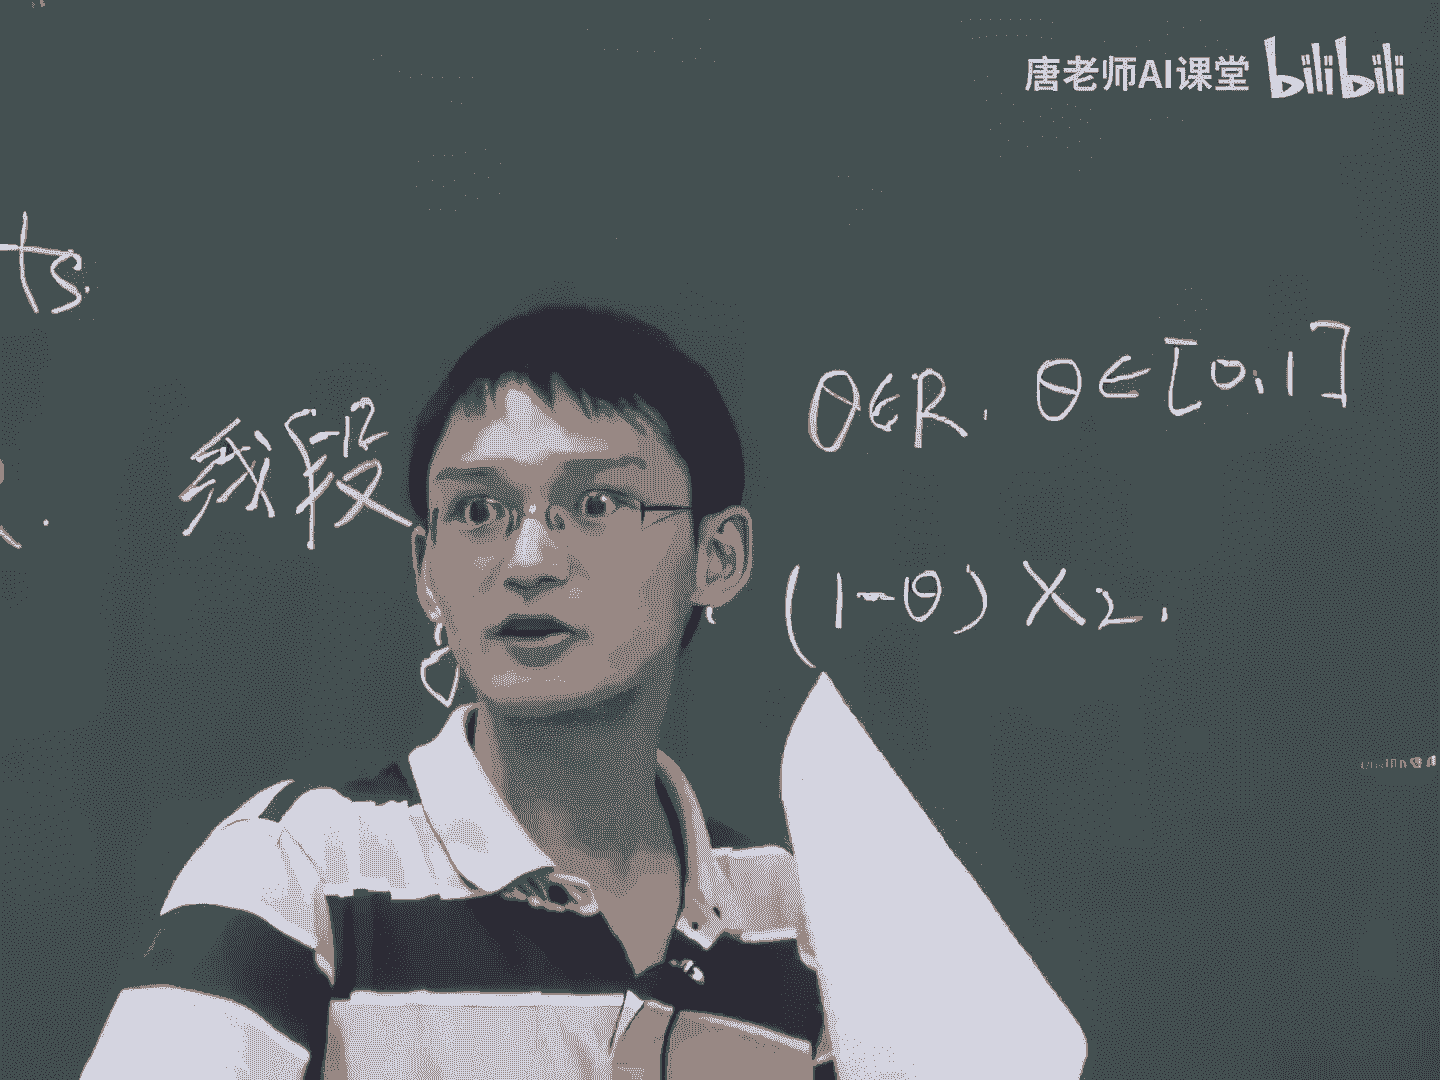 唐老师AI课堂 bilibili
ts.
线段 θ∈R. θ∈[0,1]
(1-θ) X₂.